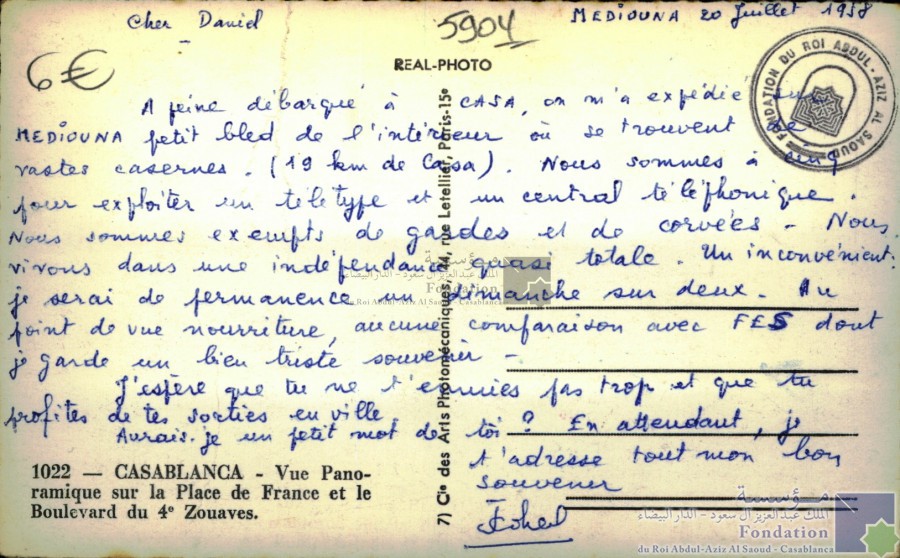 Cher Daniel
5904
MEDIOUNA 20 Juillet 1958
6€
REAL-PHOTO
FONDATION DU ROI ABDUL-AZIZ AL SAOUD
A peine débarqué à CASA, on m'a expédié
MEDIOUNA petit bled de l'intérieur où se trouvent de
vastes casernes. (19 km de Casa). Nous sommes à cinq
pour exploiter un télétype et un central téléphonique.
Nous sommes exempts de gardes et de corvées - Nous
vivons dans une indépendance quasi totale. Un inconvénient:
je serai de permanence un dimanche sur deux. Au
point de vue nourriture, aucune comparaison avec FES dont
je garde un bien triste souvenir -
J'espère que tu ne t'ennuies pas trop et que tu
profites de tes sorties en ville.
Aurais-je un petit mot de toi ? En attendant, je
t'adresse tout mon bon
souvenir
1022 — CASABLANCA - Vue Pano-
ramique sur la Place de France et le
Boulevard du 4e Zouaves.
7) Cie des Arts Photomécaniques, 44, rue Letellier, Paris-15e
مؤسسة
الملك عبد العزيز آل سعود - الدار البيضاء
Fondation
du Roi Abdul-Aziz Al Saoud - Casablanca
مؤسسة
الملك عبد العزيز آل سعود - الدار البيضاء
Fondation
du Roi Abdul-Aziz Al Saoud - Casablanca